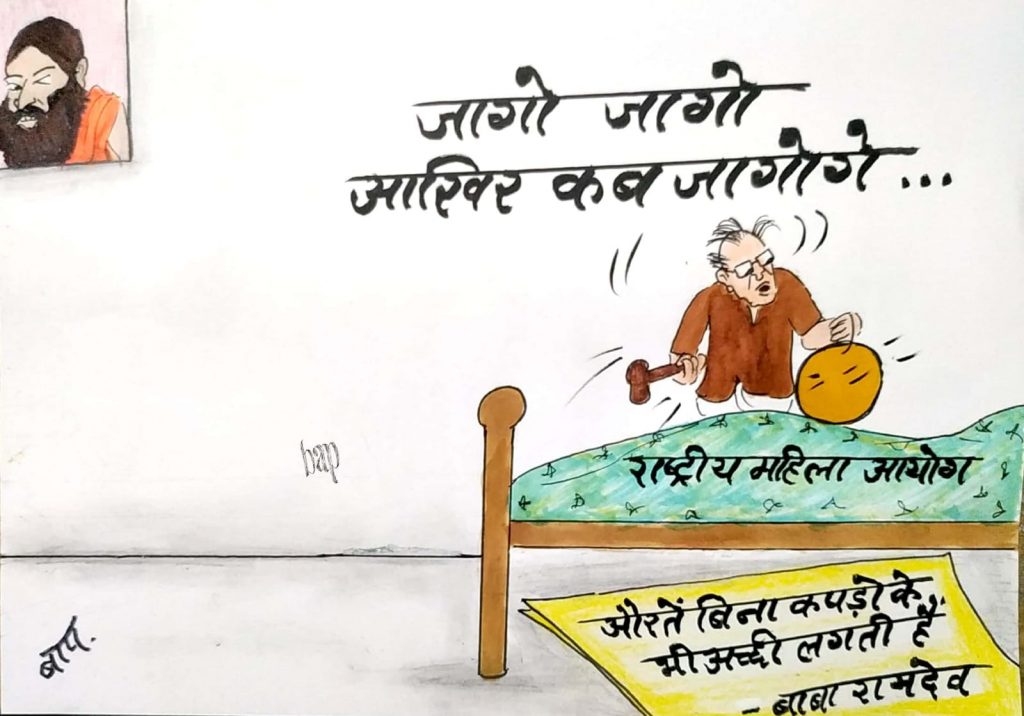 जागो जागो
आखिर कब जागोगे ...
bap
राष्ट्रीय महिला आयोग
औरतें बिना कपड़ो के
भी अच्छी लगती है"
- बाबा रामदेव
बाप.